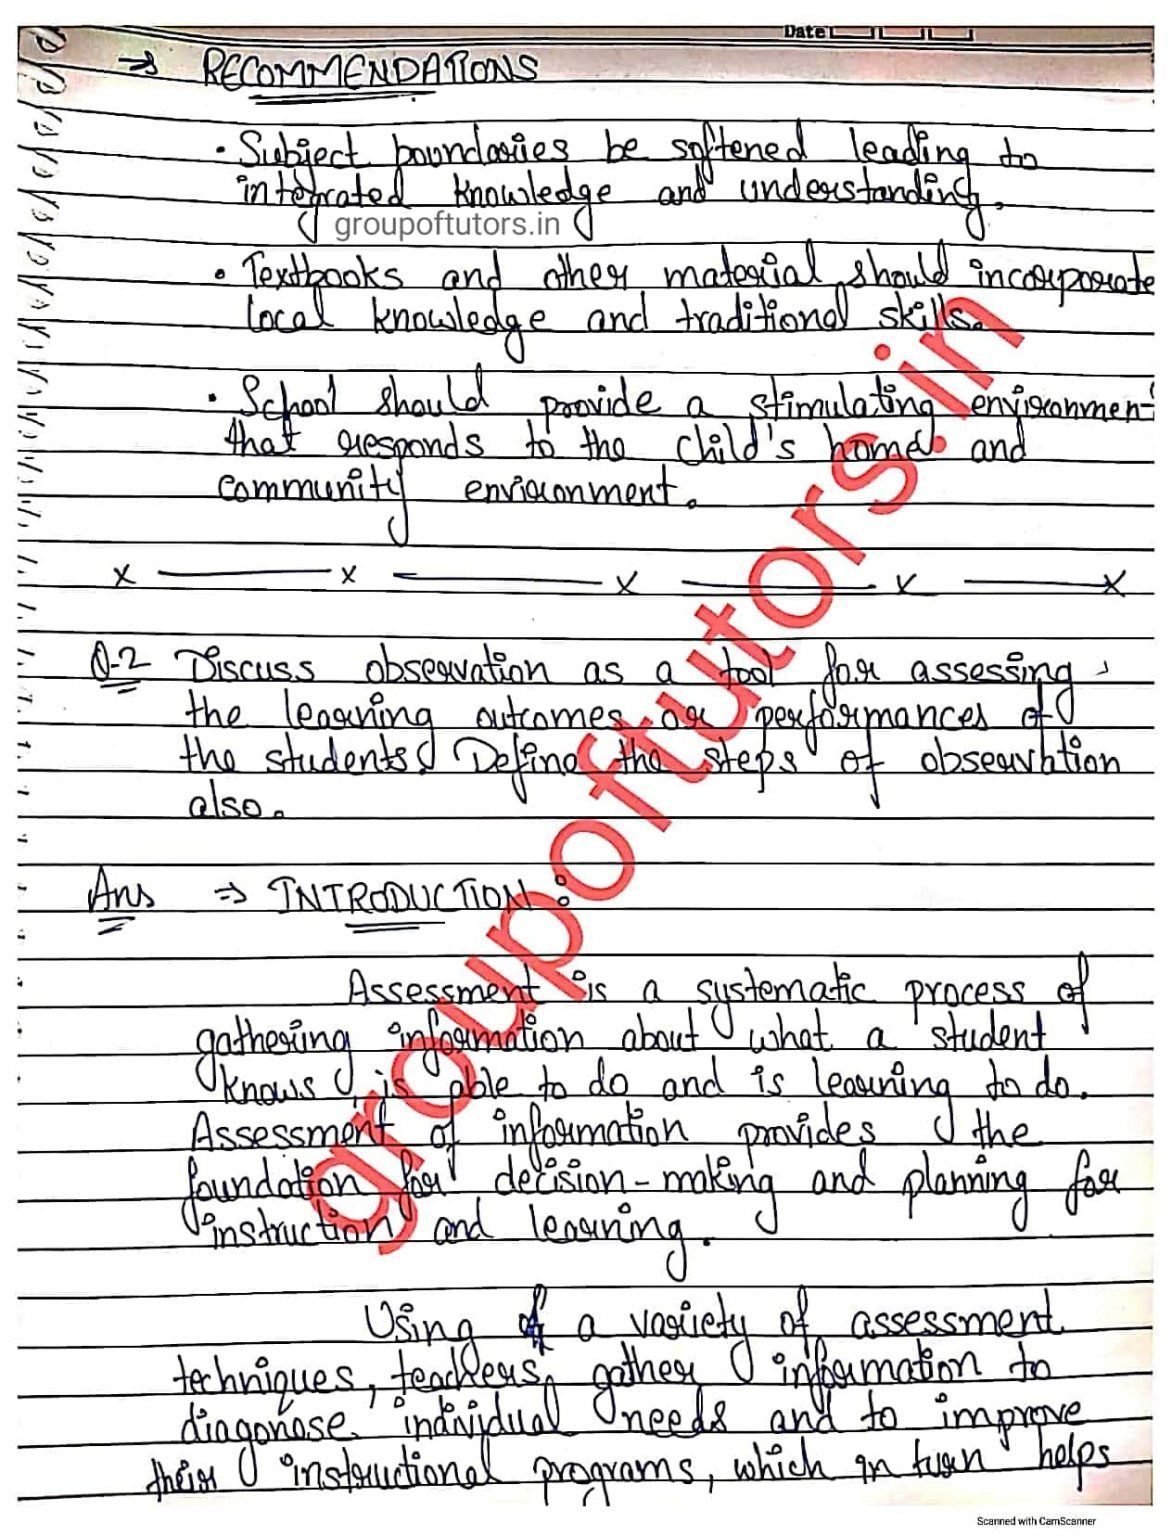 Date
→ RECOMMENDATIONS
• Subject boundaries be softened leading to
integrated knowledge and understanding.
groupoftutors.in
• Textbooks and other material should incorporate
local knowledge and traditional skills.
• School should provide a stimulating environment
that responds to the child's home and
community environment.
x x x x x
Q-2 Discuss observation as a tool for assessing
the learning outcomes or performances of
the students. Define the steps of observation
also.
Ans ⇒ INTRODUCTION :
Assessment is a systematic process of
gathering information about what a student
knows, is able to do and is learning to do.
Assessment of information provides the
foundation for decision-making and planning for
instruction and learning.
Using of a variety of assessment
techniques, teachers gather information to
diagonose individual needs and to improve
their instructional programs, which in turn helps
groupoftutors.in
Scanned with CamScanner